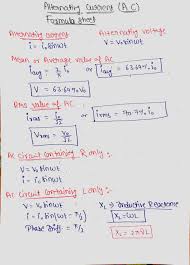 Alternating Current (A.C)
Formula sheet
Alternating current
Alternating Voltage
i = i₀ sinωt
V = V₀ sinωt
Mean or Average value of AC
i avg = 2/π i₀ or i avg = 63.69% i₀
V = 63.69% V₀
Rms value of AC :-
i rms = i₀/√2 or i rms = 70.7% i₀
V rms = V₀/√2
AC Circuit Containing R only :-
V = V₀ sinωt
i = i₀ sinωt
AC Circuit Containing L only :-
V = V₀ sinωt
i = i₀ sin(ωt - π/2)
Phase diff = π/2
X_L → Inductive Reactance
X_L = ωL
X_L = 2πνL